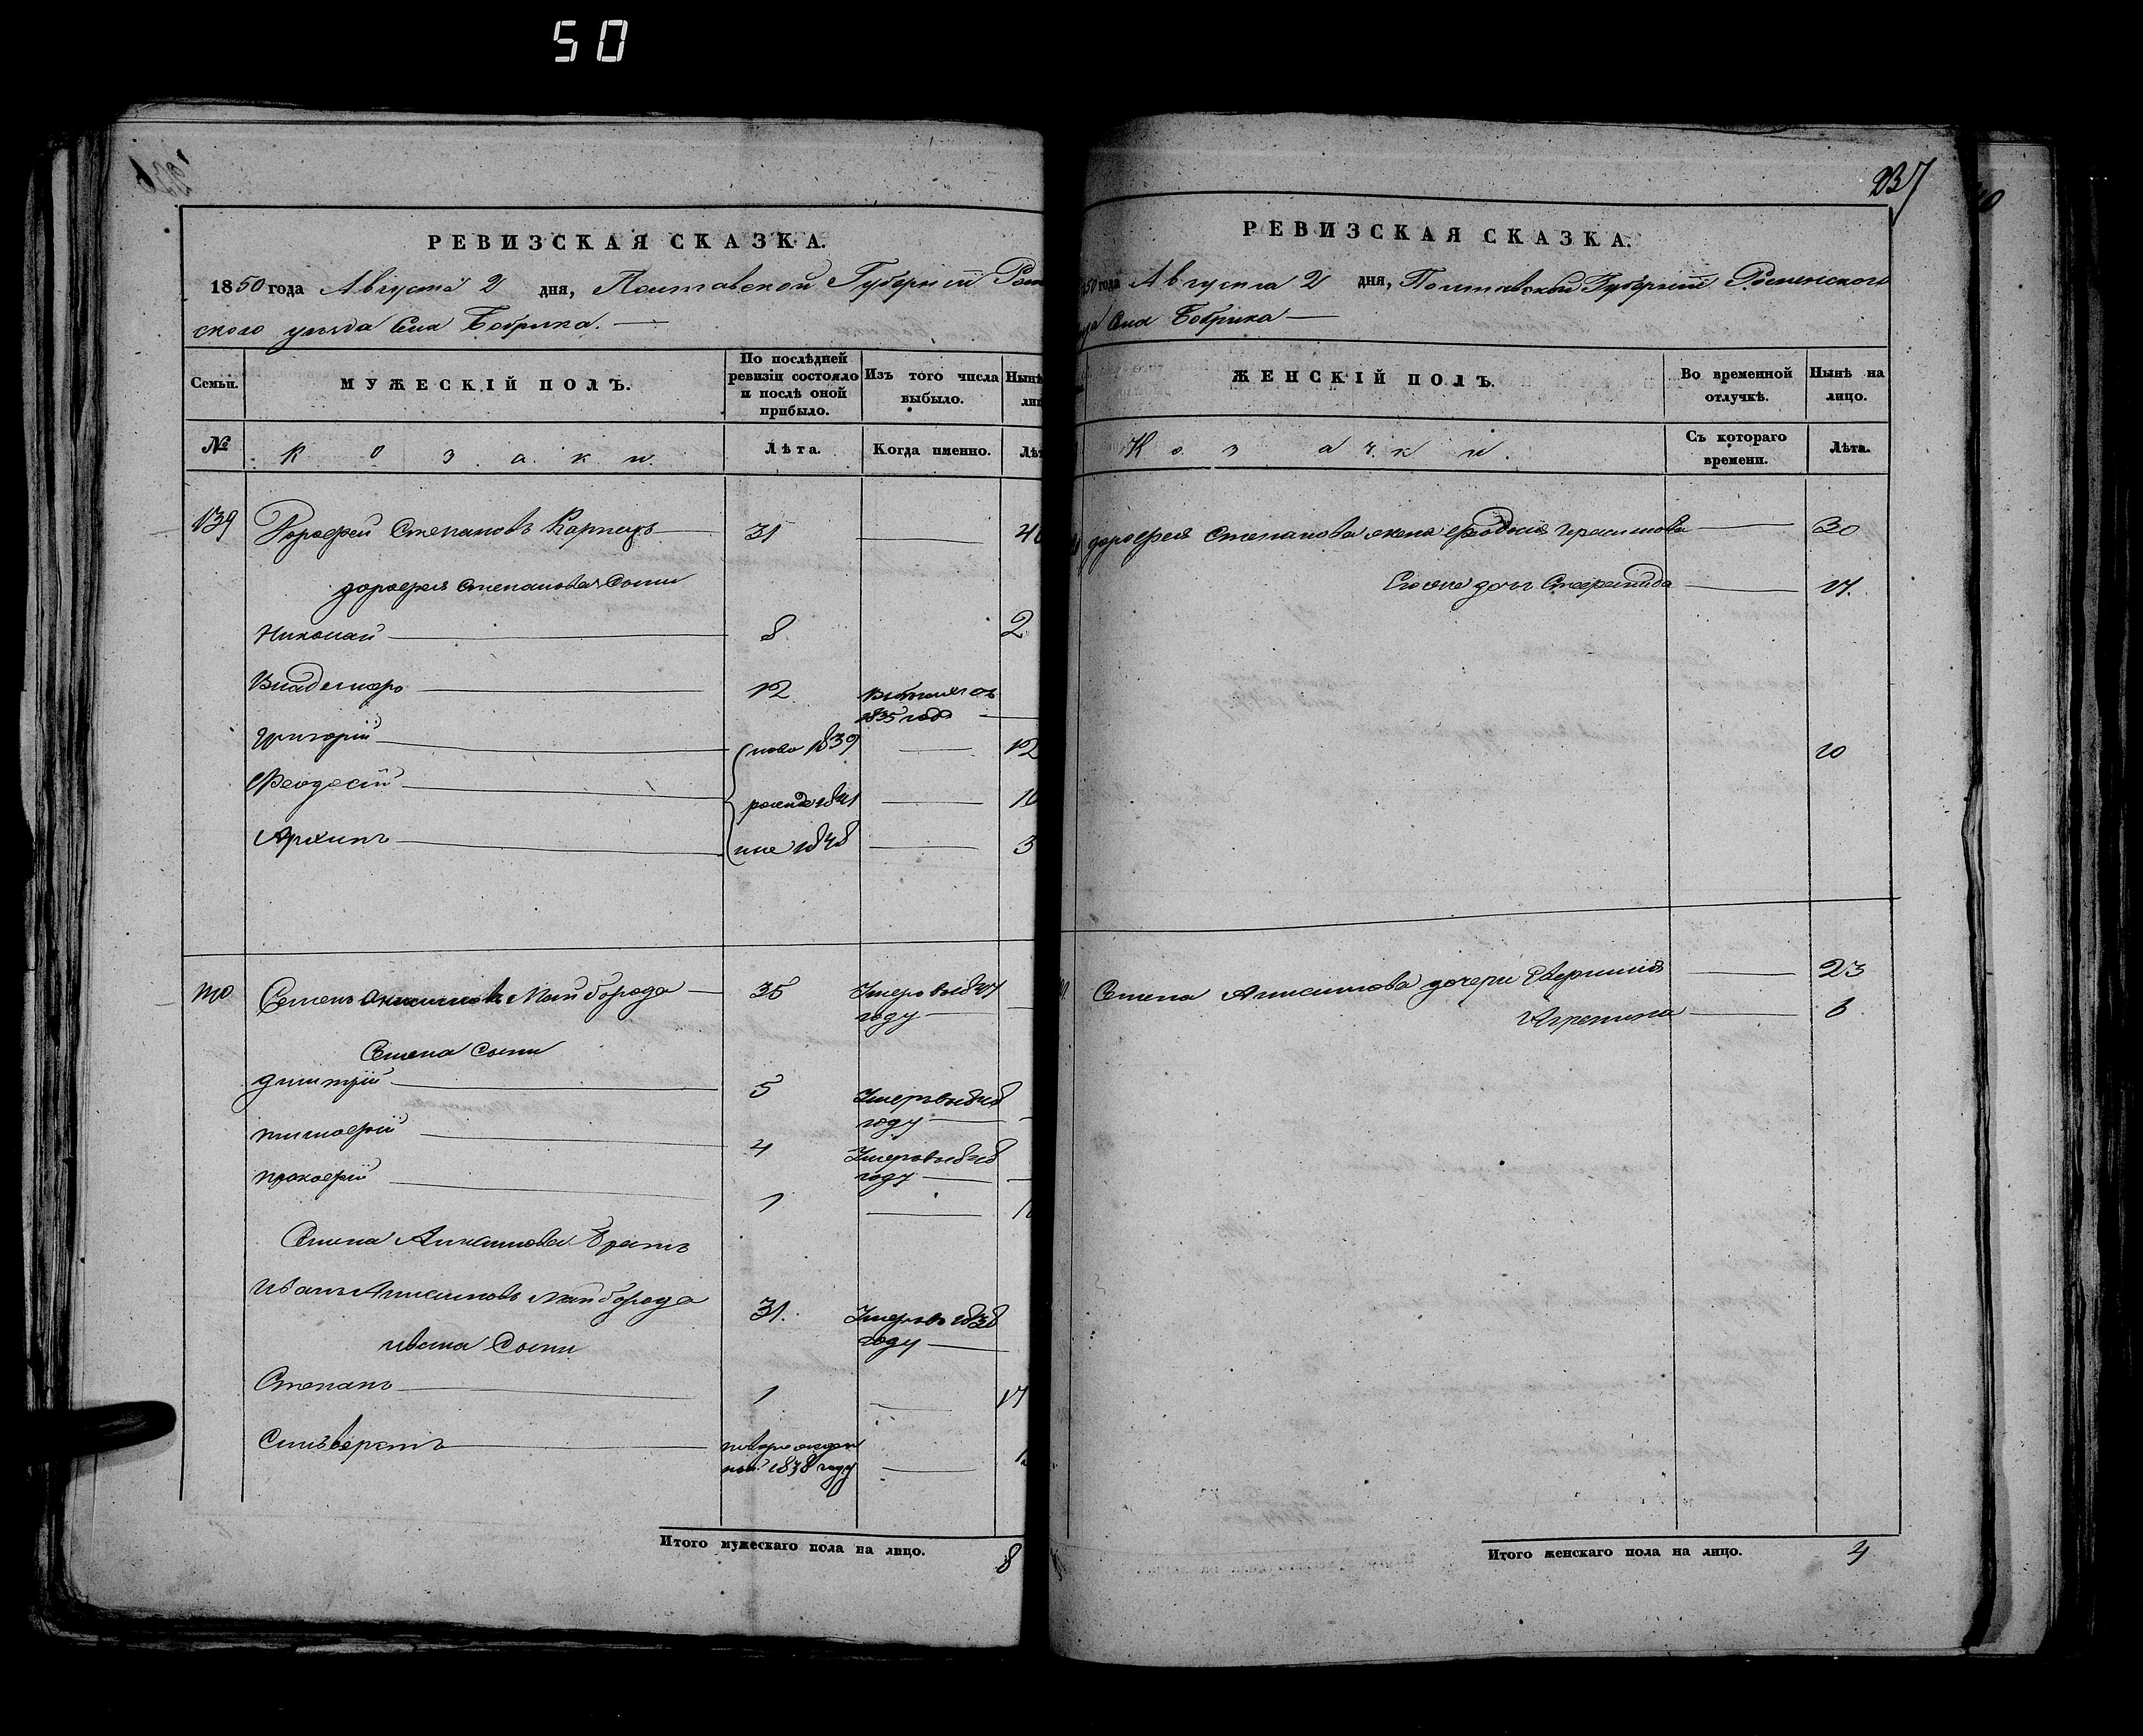 50
РЕВИЗСКАЯ СКАЗКА.
1850 года Августа 2 дня, Полтавской Губернiи Ром
ского уезда Села Бобрика.
Семьи.
МУЖЕСКIЙ ПОЛЪ.
По послѣдней ревизiи состояло и послѣ оной прибыло.
Изъ того числа выбыло.
Нынѣ
№
Козаки.
Лѣта.
Когда именно.
139
Дорофей Степановъ Карпецъ 31
дорофея Степанова Сыны
Николай 8 2
Владемеръ 12
1835 года
Григорiй ново 1839 12
Феодосiй рожде 1841
Архипъ ные 1848 3
140
Семенъ Анисимовъ Майборода 35 Умеръ в 1847
году
Семена Сыны
дмитрiй 5 Умеръ в 1848
году
тимофей 4 Умеръ в 1848
году
прокофiй 1
Семена Анисимова Братъ
Иванъ Анисимовъ Майборода 31. Умеръ в 1838
году
ивана Сыны
Степанъ 1 17
Силверстъ
1838 году
Итого мужескаго пола на лицо. 8
237
РЕВИЗСКАЯ СКАЗКА.
50 года Августа 2 дня, Полтавской Губернiи Роменского
Села Бобрика
ЖЕНСКIЙ ПОЛЪ.
Во временной отлучкѣ.
Нынѣ на лицо.
Козачки.
Съ котораго времени.
Лѣта.
дорофея Степанова жена Герасимова 30
Его дочь Степанида 17.
10
Семена Анисимова дочери 23
Агрепина 6
Итого женскаго пола на лицо. 4